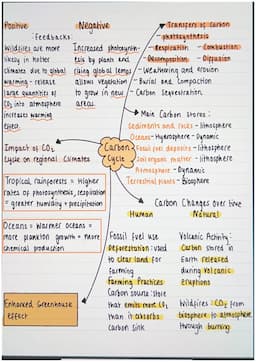 Positive Negative
Feedbacks:
Wildfires are more
likely in hotter
climates due to global
warming - release
large quantities of
CO₂ into atmosphere
increases warming
effect.
Increased photosynth-
esis by plants and
rising global temps
allows vegetation
to grow in new
areas
Transfers of Carbon
- photosynthesis
- Respiration - Combustion
- Decomposition - Diffusion
- Weathering and erosion
- Burial and Compaction
- Carbon Sequestration
Main Carbon Stores:
Sediments and rocks - lithosphere
Oceans - Hydrosphere - Dynamic
Fossil fuel deposits - lithosphere
Soil organic matter - lithosphere
Atmosphere - Dynamic
Terrestrial plants - Biosphere
Carbon
Cycle
Impact of CO₂
Cycle on regional Climates
Tropical rainforests = Higher
rates of photosynthesis, respiration
= greater humidity + precipitation
Oceans = Warmer oceans =
more plankton growth = more
chemical production
Enhanced Greenhouse
effect
Carbon Changes over time
Human Natural
Fossil fuel use
Deforestation: used
to clear land for
farming
Farming Practices
Carbon source: store
that emits more CO₂
than it absorbs
carbon sink
Volcanic Activity:
Carbon stored in
Earth released
during volcanic
eruptions
Wildfires: CO₂ from
biosphere to atmosphere
through burning